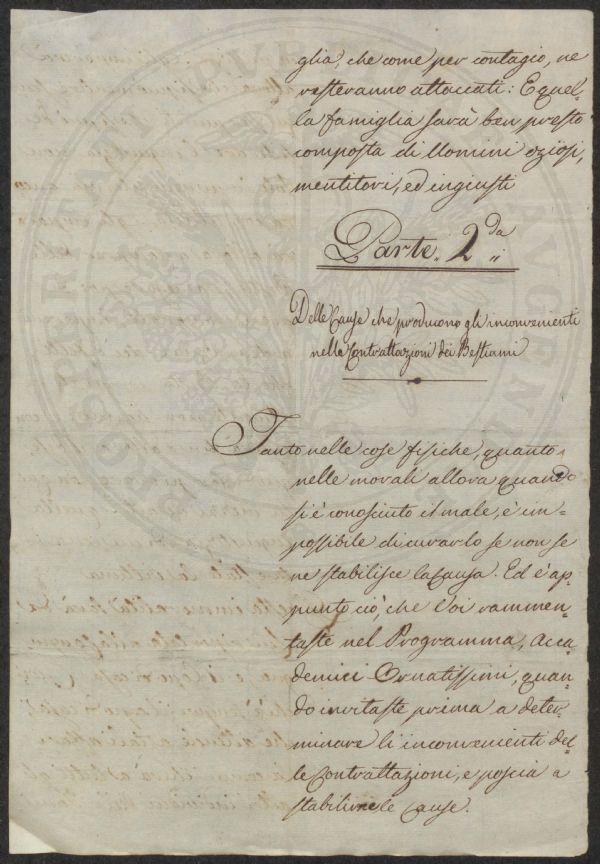 glia, che come per contagio, ne
resteranno attaccati: E quel-
la famiglia sarà ben presto
composta di Uomini oziosi,
mentitori, ed ingiusti
Parte 2da
Delle Cause che producono gli inconvenienti
nelle Contrattazioni dei Bestiami
Tanto nelle cose fisiche, quanto
nelle morali allora quando
si è conosciuto il male, è im-
possibile di curarlo se non se
ne stabilisce la Causa. Ed è ap-
punto ciò, che Voi rammen-
taste nel Programma, Acca-
demici Ornatissimi, quan-
do invitaste prima a deter-
minare li inconvenienti del-
le Contrattazioni, e poscia a
stabilirne le Cause.